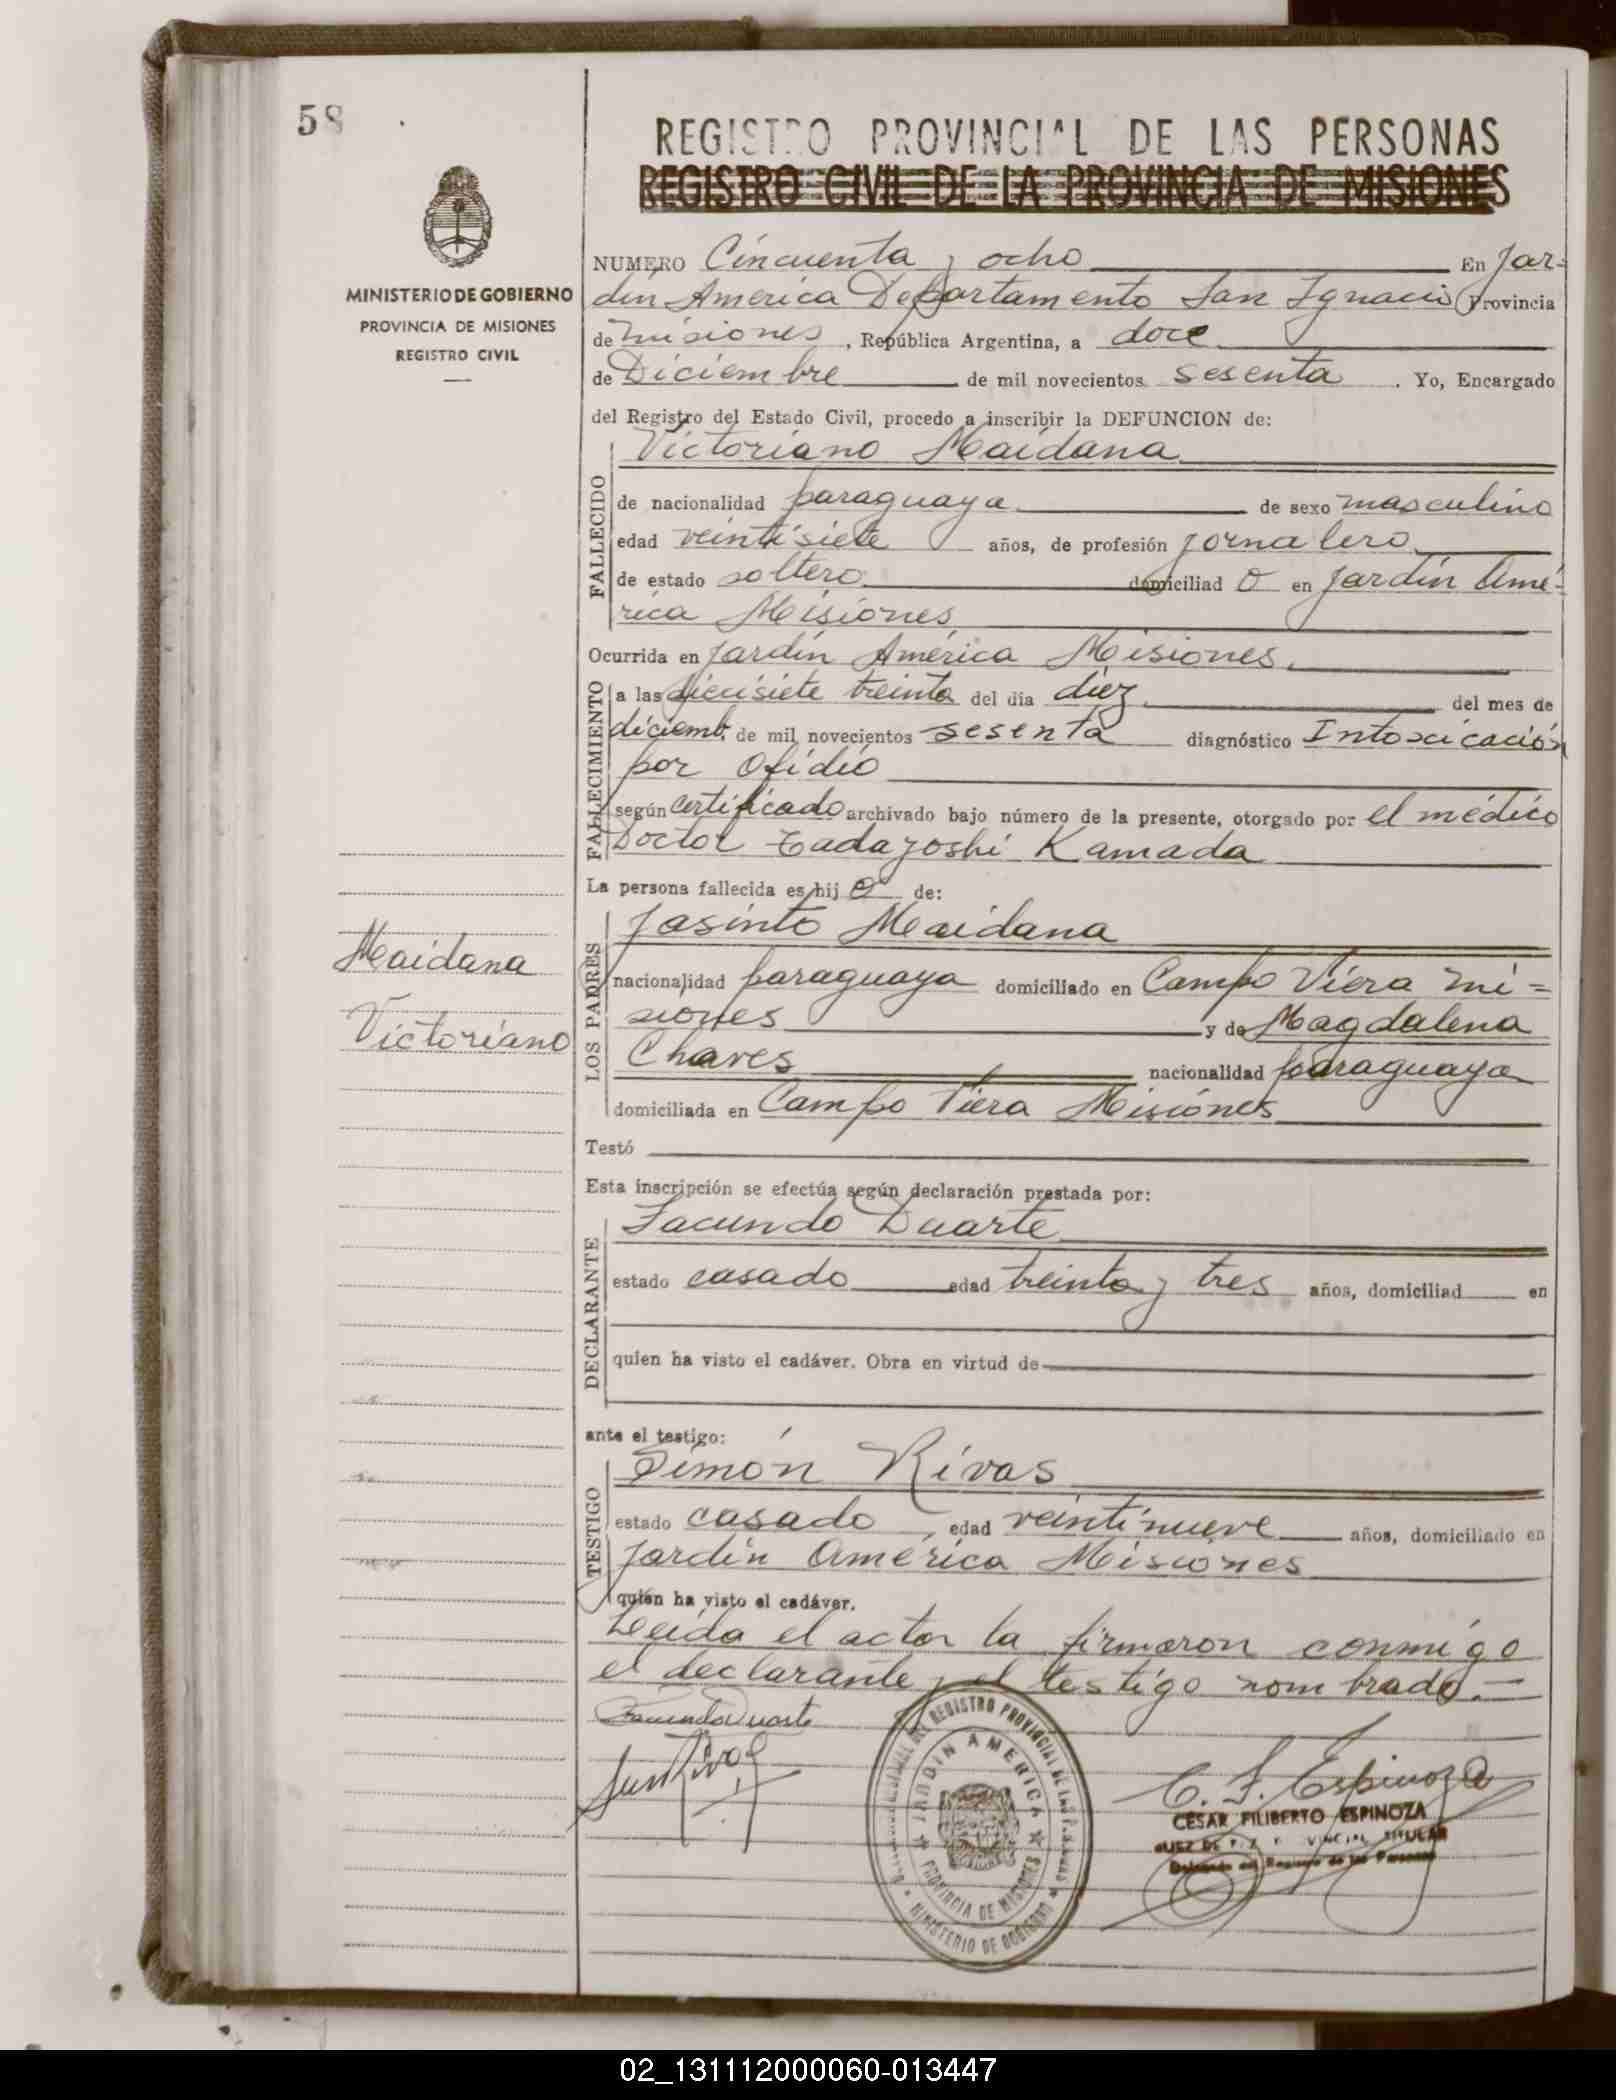 58
MINISTERIO DE GOBIERNO
PROVINCIA DE MISIONES
REGISTRO CIVIL
REGISTRO PROVINCIAL DE LAS PERSONAS
REGISTRO CIVIL DE LA PROVINCIA DE MISIONES
NUMERO Cincuenta y ocho En Jar-
dín America Departamento San Ignacio Provincia
de misiones, República Argentina, a doce
de Diciembre de mil novecientos sesenta. Yo, Encargado
del Registro del Estado Civil, procedo a inscribir la DEFUNCION de:
FALLECIDO
Victoriano Maidana
de nacionalidad paraguaya de sexo masculino
edad veintisiete años, de profesión jornalero
de estado soltero domiciliad o en Jardín Amé-
rica Misiones
Ocurrida en Jardín América Misiones.
FALLECIMIENTO
a las diecisiete treinta del día diez del mes de
diciemb. de mil novecientos sesenta diagnóstico Intoxicación
por Ofidio
según certificado archivado bajo número de la presente, otorgado por el médico
Doctor Tadayoshi Kamada
La persona fallecida es hij o de:
LOS PADRES
Jasinto Maidana
nacionalidad paraguaya domiciliado en Campo Viera Mi-
siones y de Magdalena
Chaves nacionalidad paraguaya
domiciliada en Campo Viera Misiones
Maidana
Victoriano
Testó
Esta inscripción se efectúa según declaración prestada por:
DECLARANTE
Facundo Duarte
estado casado edad treinta y tres años, domiciliad en
quien ha visto el cadáver. Obra en virtud de
ante el testigo:
TESTIGO
Simón Rivas
estado casado, edad veintinueve años, domiciliado en
Jardín América Misiones
quien ha visto el cadáver.
Leída el acta la firmaron conmigo
el declarante y el testigo nombrado.-
Facundo Duarte
REGISTRO PROVINCIAL DE LAS PERSONAS
JARDIN AMERICA
PROVINCIA DE MISIONES
MINISTERIO DE GOBIERNO
C. F. Espinoza
CESAR FILIBERTO ESPINOZA
JUEZ DE TITULAR
02_131112000060-013447